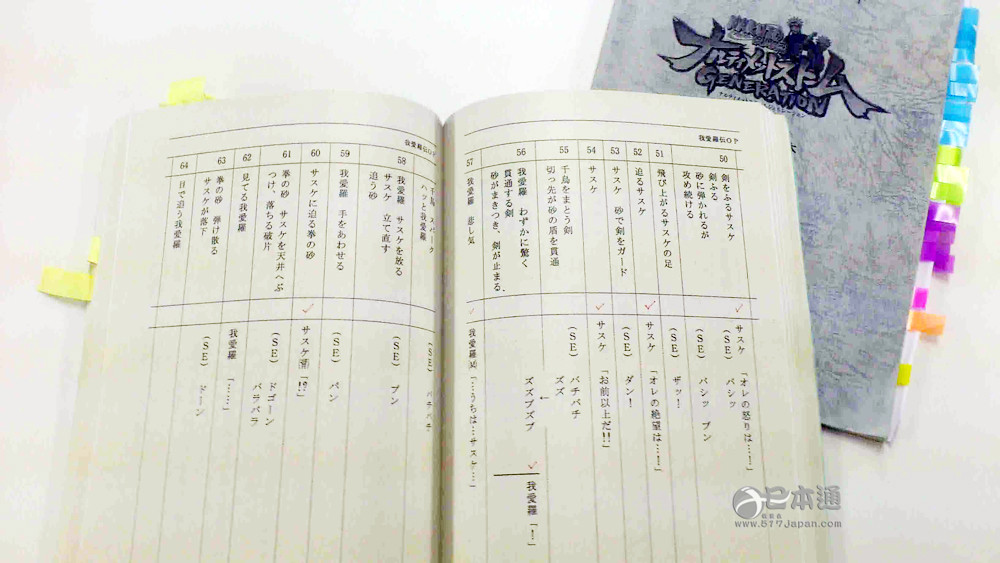 ナルティメットストーム
GENERATION
我愛羅伝OP
50
剣をふるサスケ
剣ふる
砂に弾かれるが
攻め続ける
サスケ「オレの怒りは…！」
（SE） バシッ
（SE） バシッ ブン
51
飛び上がるサスケの足
（SE） ザッ！
52
迫るサスケ
サスケ「オレの絶望は…！」
53
サスケ 砂で剣をガード
（SE） ダン！
54
サスケ
サスケ「お前以上だ!!」
55
千鳥をまとう剣
切っ先が砂の盾を貫通
（SE） バチバチ
ズズ
56
我愛羅 わずかに驚く
貫通する剣
砂がまきつき、剣が止まる、
ズズブズブ
我愛羅「！」
57
我愛羅 悲し気
我愛羅「…うちは…サスケ…」
我愛羅伝OP
ハッと我愛羅
（SE） バチバチ
58
我愛羅 サスケを放る
サスケ 立て直す
追う砂
（SE） ブン
59
我愛羅 手をあわせる
（SE） パン
60
サスケに迫る拳の砂
サスケ「!?」
61
拳の砂 サスケを天井へぶ
つけ、落ちる破片
（SE） ドゴーン
バラバラ
62
見てる我愛羅
我愛羅「……」
63
拳の砂 弾け散る
サスケが落下
（SE） ドーン
64
目で追う我愛羅
日本通
www.517Japan.com